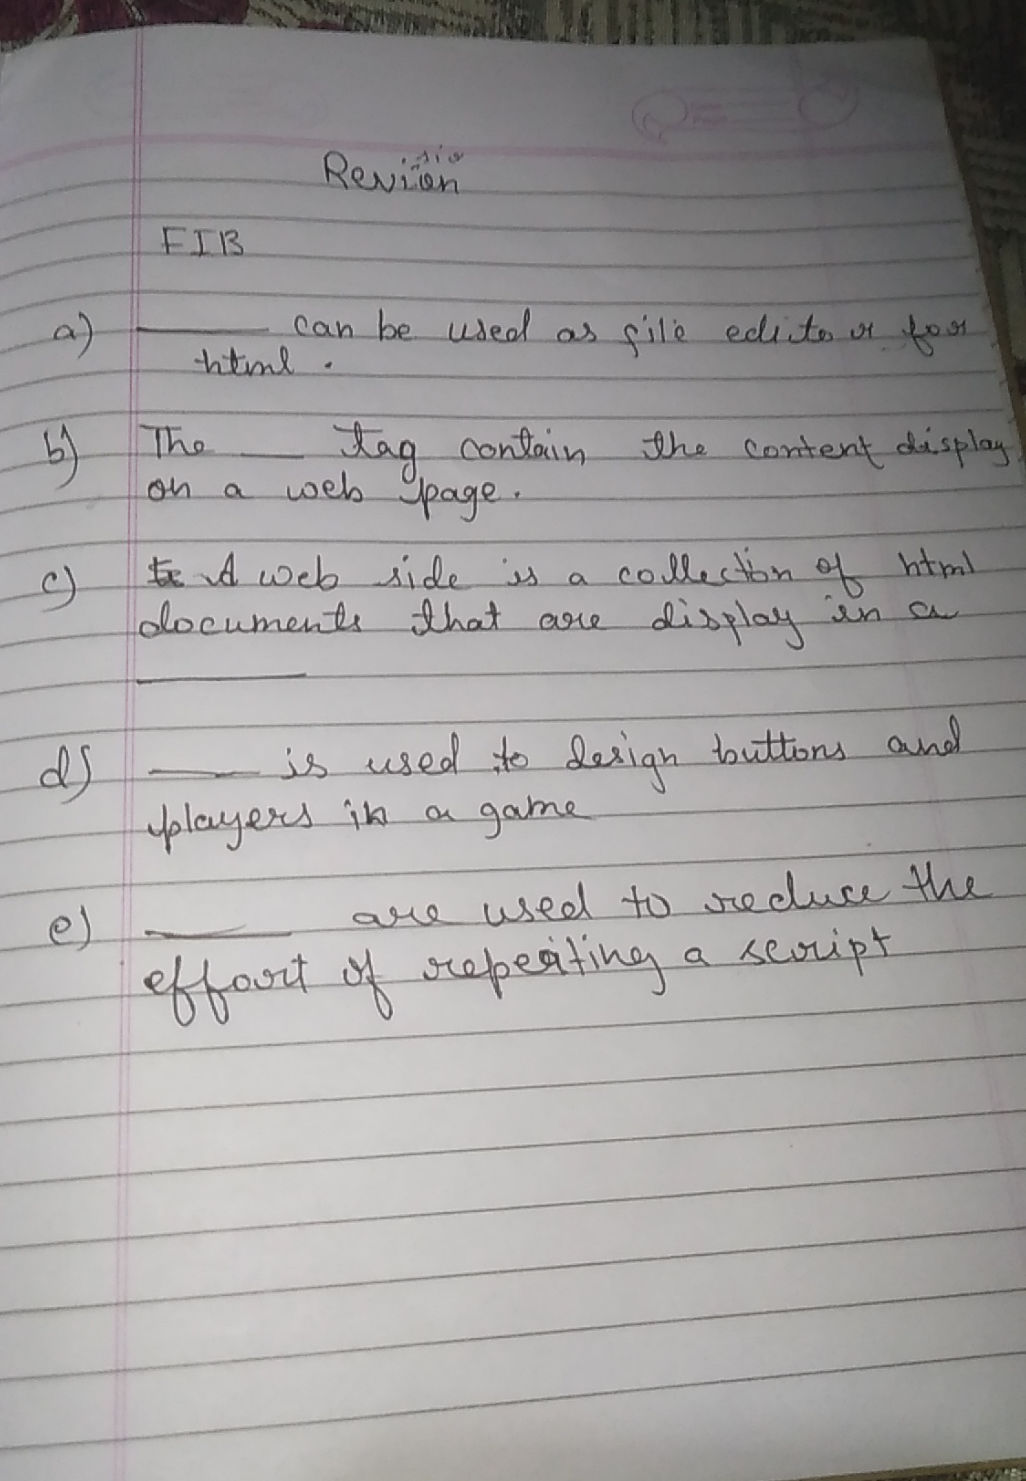 Revision
FIB
a) ______ can be used as file editor for
html.
b) The ___ tag contain the content display
on a web page.
c) A web side is a collection of html
documents that are display in a
______
d) ______ is used to design buttons and
players in a game
e) ______ are used to reduce the
effort of repeating a script